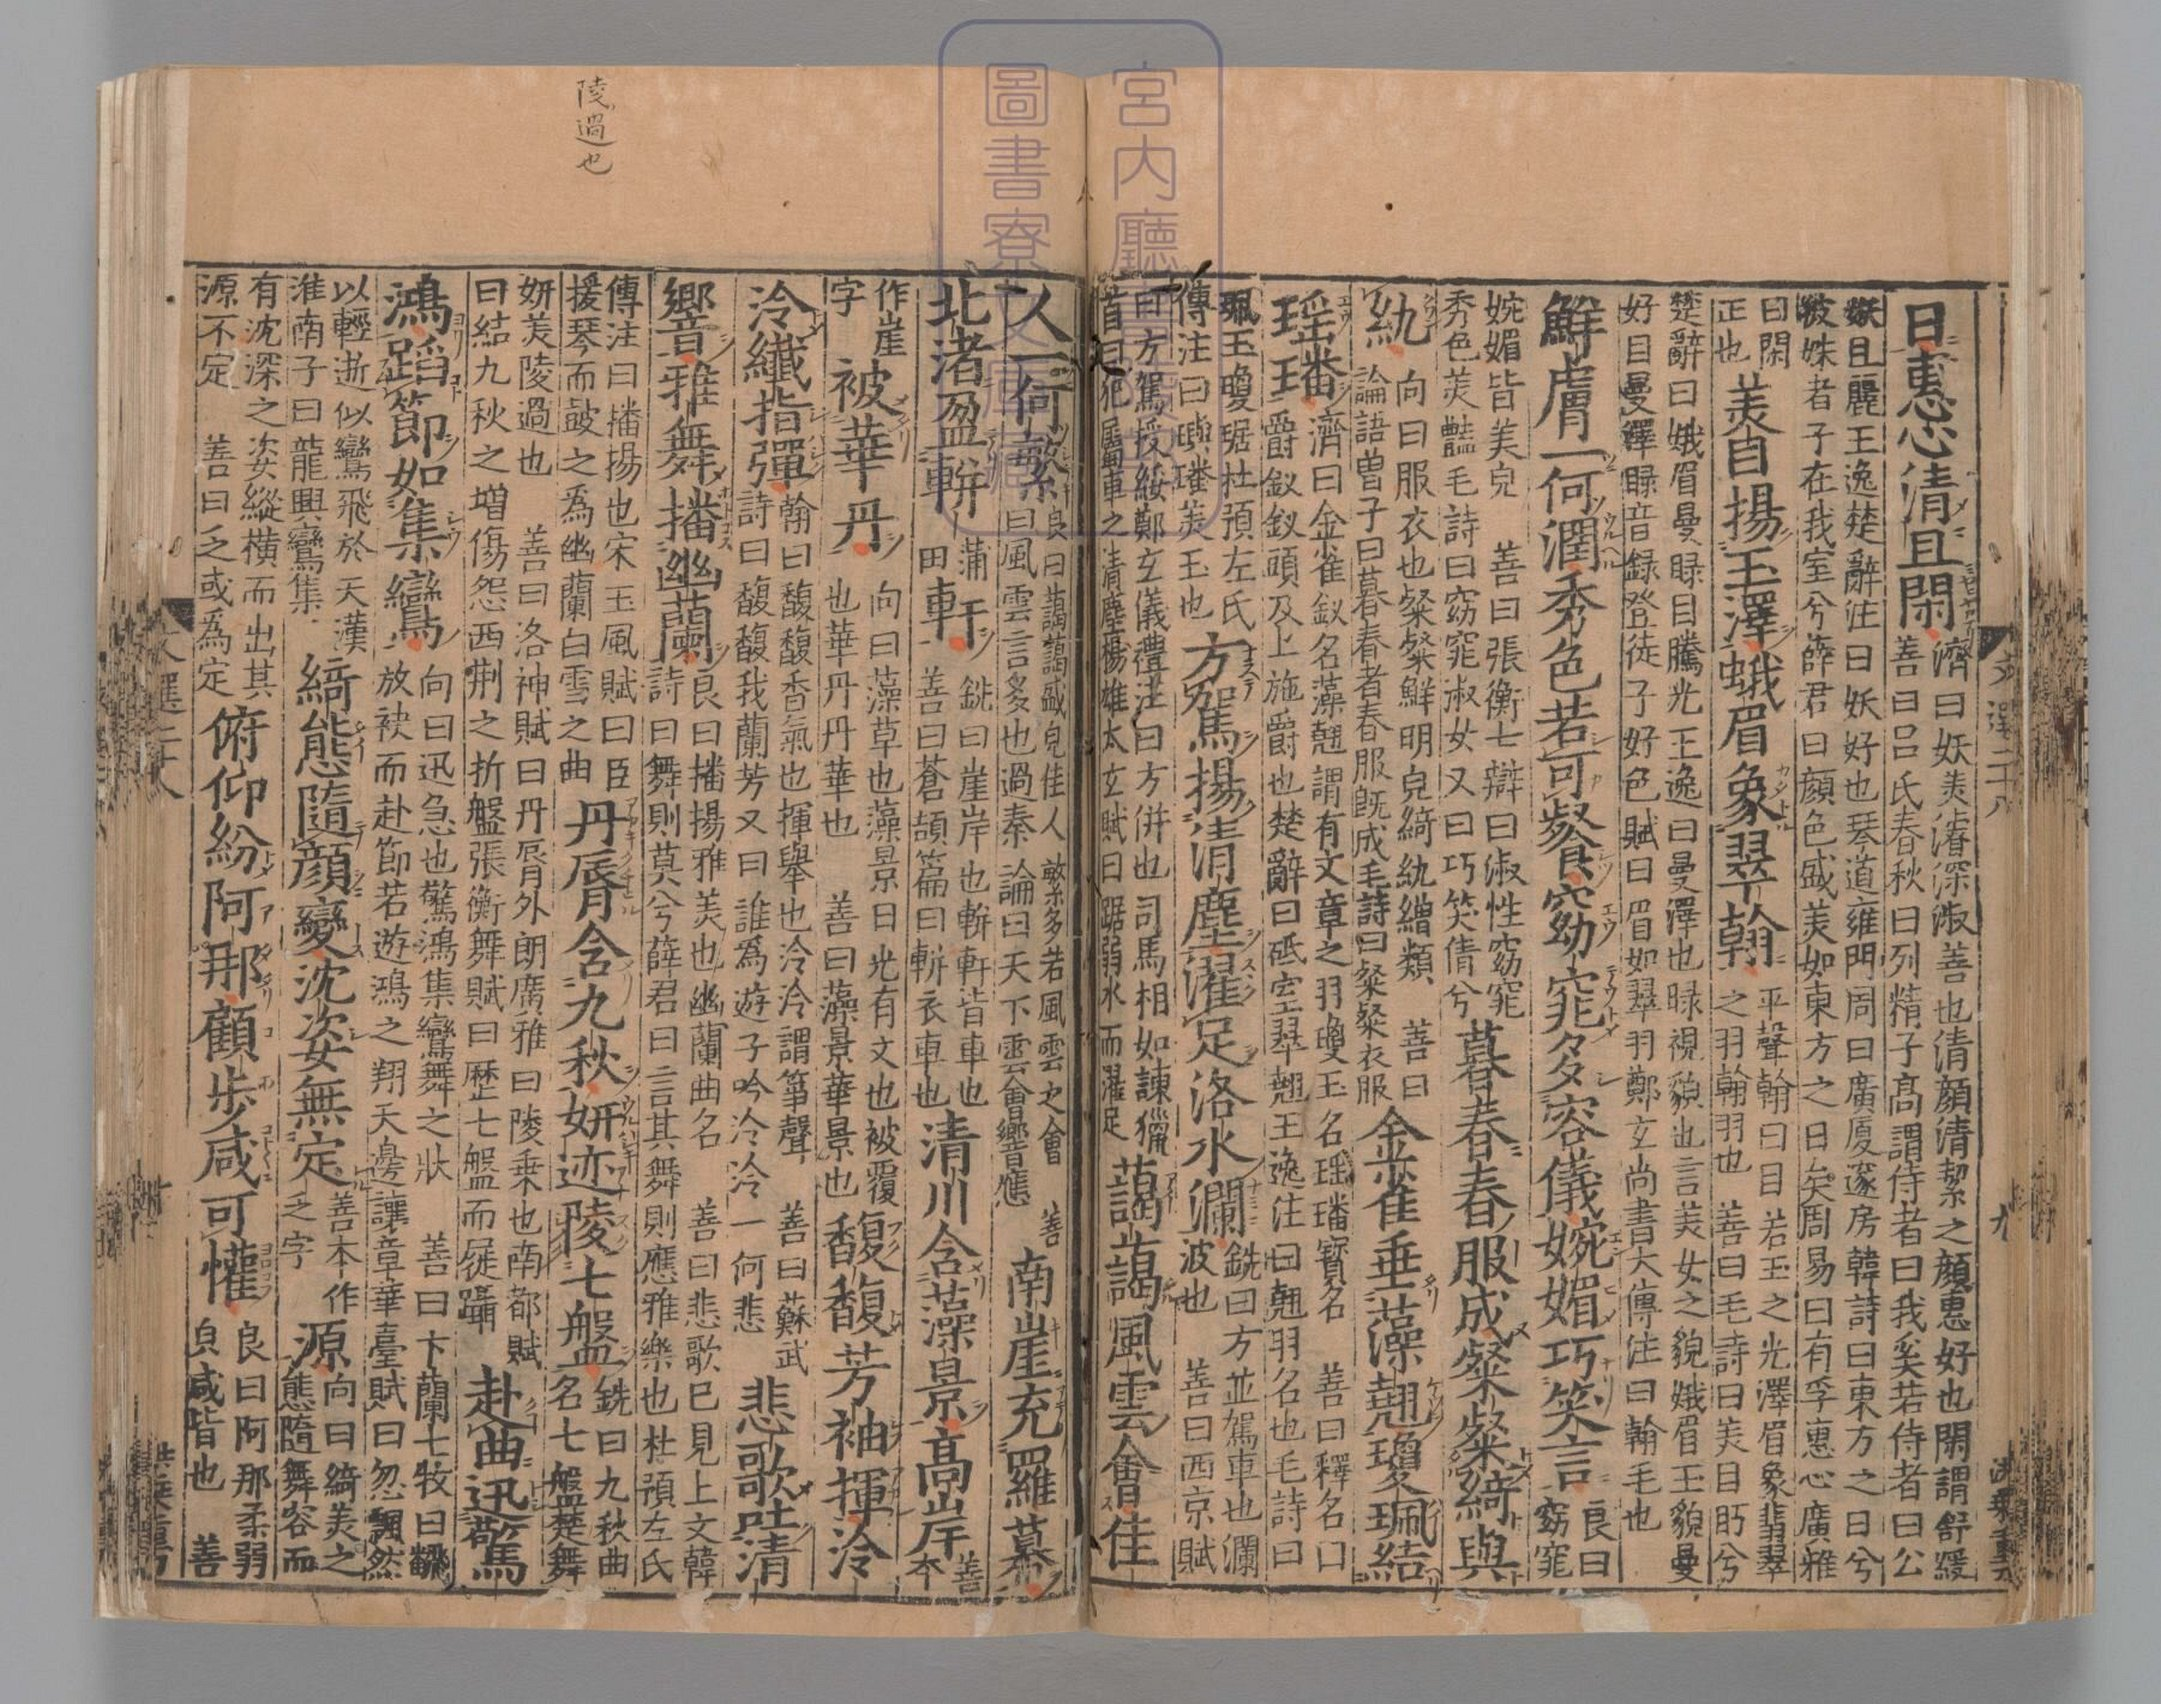 日惠心清且閑
濟曰妖美濬深淑善也清顏清絜之顏惠好也閑謂舒緩
善曰呂氏春秋曰列精子高謂侍者曰我奚若侍者曰公
姝且麗王逸楚辭注曰妖好也琴道雍門周曰廣厦邃房韓詩曰東方之日兮
彼姝者子在我室兮薛君曰顏色盛美如東方之日矣周易曰有孚惠心廣雅
曰閑
正也
美目揚玉澤蛾眉象翠翰
平聲翰曰目若玉之光澤眉象翡翠
之羽翰羽也 善曰毛詩曰美目眄兮
楚辭曰娥眉曼睩目騰光王逸曰曼澤也睩視貌也言美女之貌娥眉玉貌曼
好目曼澤睩音録登徒子好色賦曰眉如翠羽鄭玄尚書大傳注曰翰毛也
鮮膚一何潤秀色若可餐窈窕多容儀婉媚巧笑言
良曰
窈窕
婉媚皆美皃 善曰張衡七辯曰淑性窈窕
秀色美豔毛詩曰窈窕淑女又曰巧笑倩兮
暮春春服成粲粲綺與
紈
向曰服衣也粲粲鮮明皃綺紈繒類 善曰
論語曽子曰暮春者春服既成毛詩曰粲粲衣服
金雀垂藻翹瓊珮結
瑶璠
濟曰金雀釵名藻翹謂有文章之羽瓊玉名瑶璠寳名 善曰釋名曰
爵釵釵頭及上施爵也楚辭曰砥室翠翹王逸注曰翹羽名也毛詩曰
珮玉瓊琚杜預左氏
傳注曰璵璠美玉也
方駕揚清塵濯足洛水瀾
銑曰方並駕車也瀾
波也 善曰西京賦
曰方駕授綏鄭玄儀禮注曰方併也司馬相如諫獵
書曰犯屬車之清塵楊雄太玄賦曰踞弱水而濯足
藹藹風雲會佳
人一何繁
良曰藹藹盛皃佳人繁多若風雲之會 善
曰風雲言多也過秦論曰天下雲會響應
南崖充羅幕
北渚盈軿
蒲
田
軒
銑曰崖岸也軿軒皆車也
善曰蒼頡篇曰軿衣車也
清川含藻景高岸
善
本
作崖
字
被華丹
向曰藻草也藻景日光有文也被覆
也華丹丹華也 善曰藻景華景也
馥馥芳袖揮泠
泠纖指彈
翰曰馥馥香氣也揮舉也泠泠謂箏聲 善曰蘇武
詩曰馥馥我蘭芳又曰誰爲遊子吟泠泠一何悲
悲歌吐清
響雅舞播幽蘭
良曰播揚雅美也幽蘭曲名 善曰悲歌已見上文韓
詩曰舞則莫兮薛君曰言其舞則應雅樂也杜預左氏
傳注曰播揚也宋玉風賦曰臣
援琴而鼓之爲幽蘭白雪之曲
丹脣含九秋妍迹陵七盤
銑曰九秋曲
名七盤楚舞
妍美陵過也 善曰洛神賦曰丹脣外朗廣雅曰陵乘也南都賦
曰結九秋之増傷怨西荆之折盤張衡舞賦曰歷七盤而屣躡
赴曲迅驚
鴻蹈節如集鸞
向曰迅急也驚鴻集鸞舞之狀 善曰卞蘭七牧曰翻
放袂而赴節若遊鴻之翔天邊讓章華臺賦曰忽飄然
以輕逝似鸞飛於天漢
淮南子曰龍興鸞集
綺態隨顏變沈姿無定
善本作
乏字
源
向曰綺美之
態隨舞容而
有沈深之姿縱橫而出其
源不定 善曰乏或爲定
俯仰紛阿那顧歩咸可懽
良曰阿那柔弱
皃咸皆也 善
陵過也
文選二十八
九
宮内廳
圖書寮